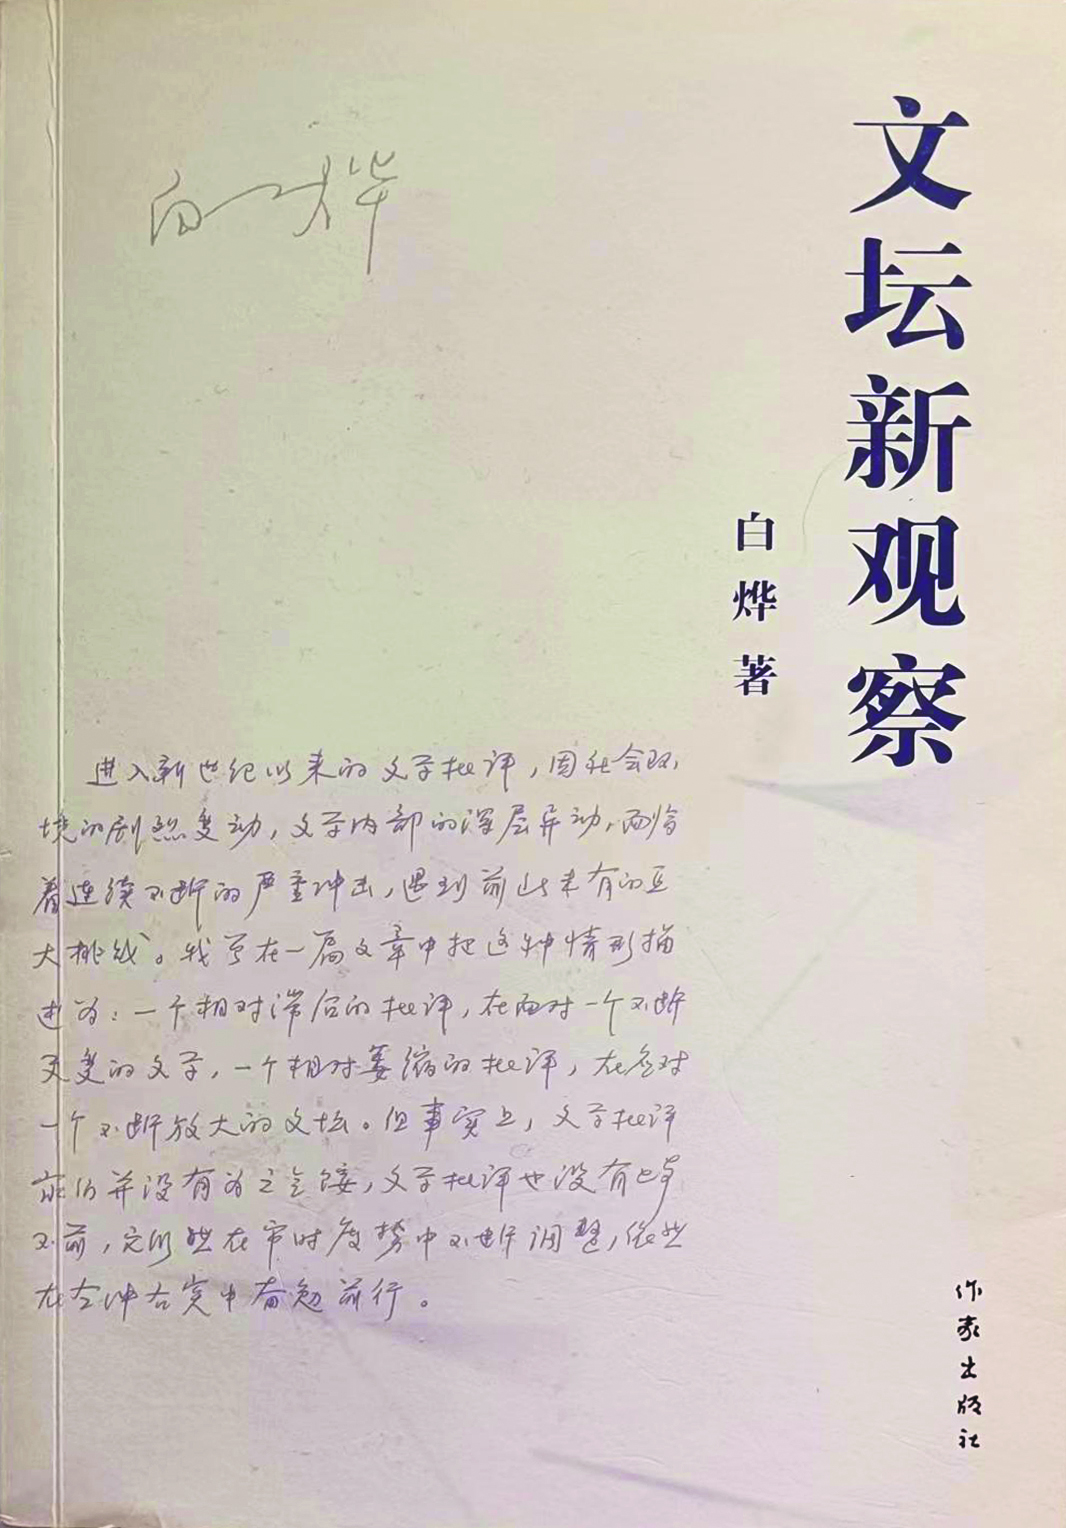 文坛新观察
白烨著
白烨
进入新世纪以来的文学批评,因社会环
境的剧烈变动,文学内部的深层异动,面临
着连续不断的严重冲击,遇到前此未有的巨
大挑战。我曾在一篇文章中把这种情形描
述为:一个相对滞后的批评,在面对一个不断
更变的文学,一个相对萎缩的批评,在应对
一个不断放大的文坛。但事实上,文学批评
家们并没有为之气馁,文学批评也没有止步
不前,它依然在审时度势中不断调整,依然
在左冲右突中奋勉前行。
作家出版社